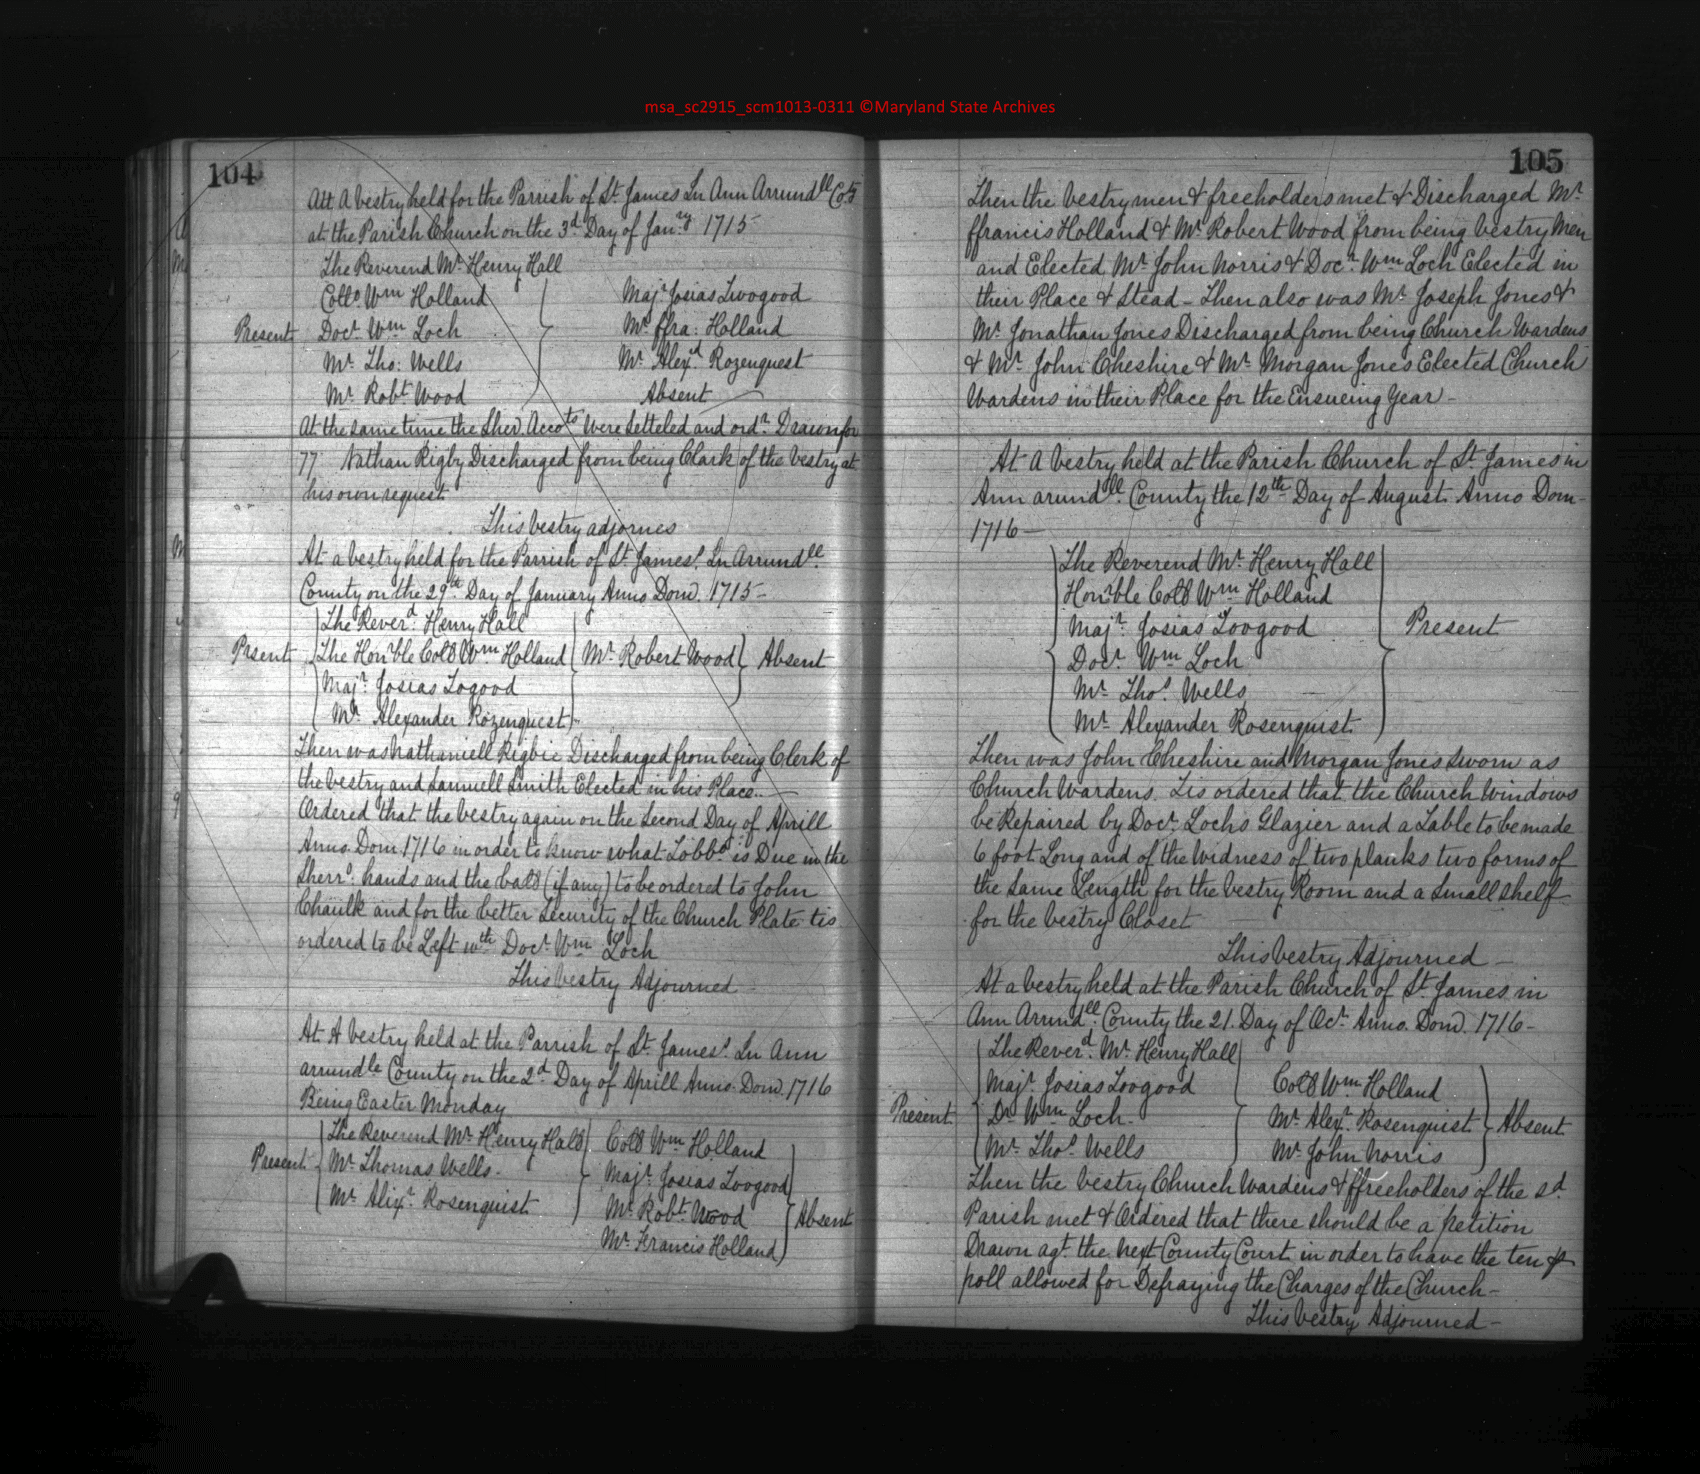 msa_sc2915_scm1013-0311 ©Maryland State Archives
104
Att A Vestry held for the Parrish of St. James In Ann Arrundll Coty
at the Parish Church on the 3d Day of Janry 1715
The Reverend Mr. Henry Hall
Collo. Wm Holland
Majr Josias Twogood
Present Docr. Wm Loch
Mr. ffra: Holland
Mr. Tho: Wells
Mr. Alexd. Rozenquest
Mr. Robt Wood
Absent
At the same time the Sher. Accots Were Setteled and ordr. Drawn for
77 Nathan Rigby Discharged from being Clark of the Vestry at
his own request
This Vestry adjornes
At a Vestry held for the Parrish of St. James's. In Arrundll.
County on the 29th. Day of January Anno Dom. 1715 -
The Reverd. Henry Hall
Prsent The Honrble Collo Wm Holland Mr. Robert Wood Absent
Majr. Josias Togood
Mr. Alexander Rozenquest
Then was Nathaniell Rigbie Discharged from being Clerk of
the Vestry and Samuell Smith Elected in his Place. -
Ordered that the Vestry again on the Second Day of Aprill
Anno. Dom 1716 in order to know what Tobbo. is Due in the
Sherrs. hands and the ballo (if any) to be ordered to John
Chaulk and for the better Security of the Church Plate tis
ordered to be Left wth Docr. Wm Loch
This Vestry Adjourned
At A Vestry held at the Parrish of St. James's. In Ann
arrundle County on the 2d Day of Aprill Anno. Dom. 1716
Being Easter Monday
The Reverend Mr. Henry Hall Collo Wm Holland
Present Mr. Thomas Wells. Majr. Josias Toogood
Mr. Alixr. Rosenquist Mr. Robt. Wood Absent
Mr. Francis Holland
105
Then the Vestry men & freeholders met & Discharged Mr.
ffrancis Holland & Mr. Robert Wood from being Vestry Men
and Elected Mr. John Norris & Docr. Wm Loch Elected in
their Place & Stead - Then also was Mr. Joseph Jones &
Mr. Jonathan Jones Discharged from being Church Wardens
& Mr. John Cheshire & Mr. Morgan Jones Elected Church
Wardens in their Place for the Ensueing Year -
At A Vestry held at the Parish Church of St. James in
Ann arundll. County the 12th Day of August Anno Dom -
1716 -
The Reverend Mr. Henry Hall
Honrble Collo Wm Holland
Majr. Josias Toogood Present
Docr. Wm Loch
Mr. Thos. Wells
Mr. Alexander Rosenquist
Then was John Cheshire and Morgan Jones Sworn as
Church Wardens. Tis ordered that the Church Windows
be Repaired by Docr. Lochs Glazier and a Table to be made
6 foot Long and of the Widness of two planks two forms of
the Same Length for the Vestry Room and a Small shelf
for the Vestry Closet
This Vestry Adjourned -
At a Vestry held at the Parish Church of St. James in
Ann Arrundll. County the 21. Day of Ocr. Anno. Dom. 1716 -
The Reverd. Mr. Henry Hall
Majr. Josias Toogood Collo Wm Holland
Present Dr. Wm Loch. Mr. Alexr. Rosenquist Absent
Mr. Thos. Wells Mr. John Norris
Then the Vestry Church Wardens & ffreeholders of the sd.
Parish met & Ordered that there should be a petition
Drawn agt. the next County Court in order to have the ten p
poll allowed for Defraying the Charges of the Church -
This Vestry Adjourned -